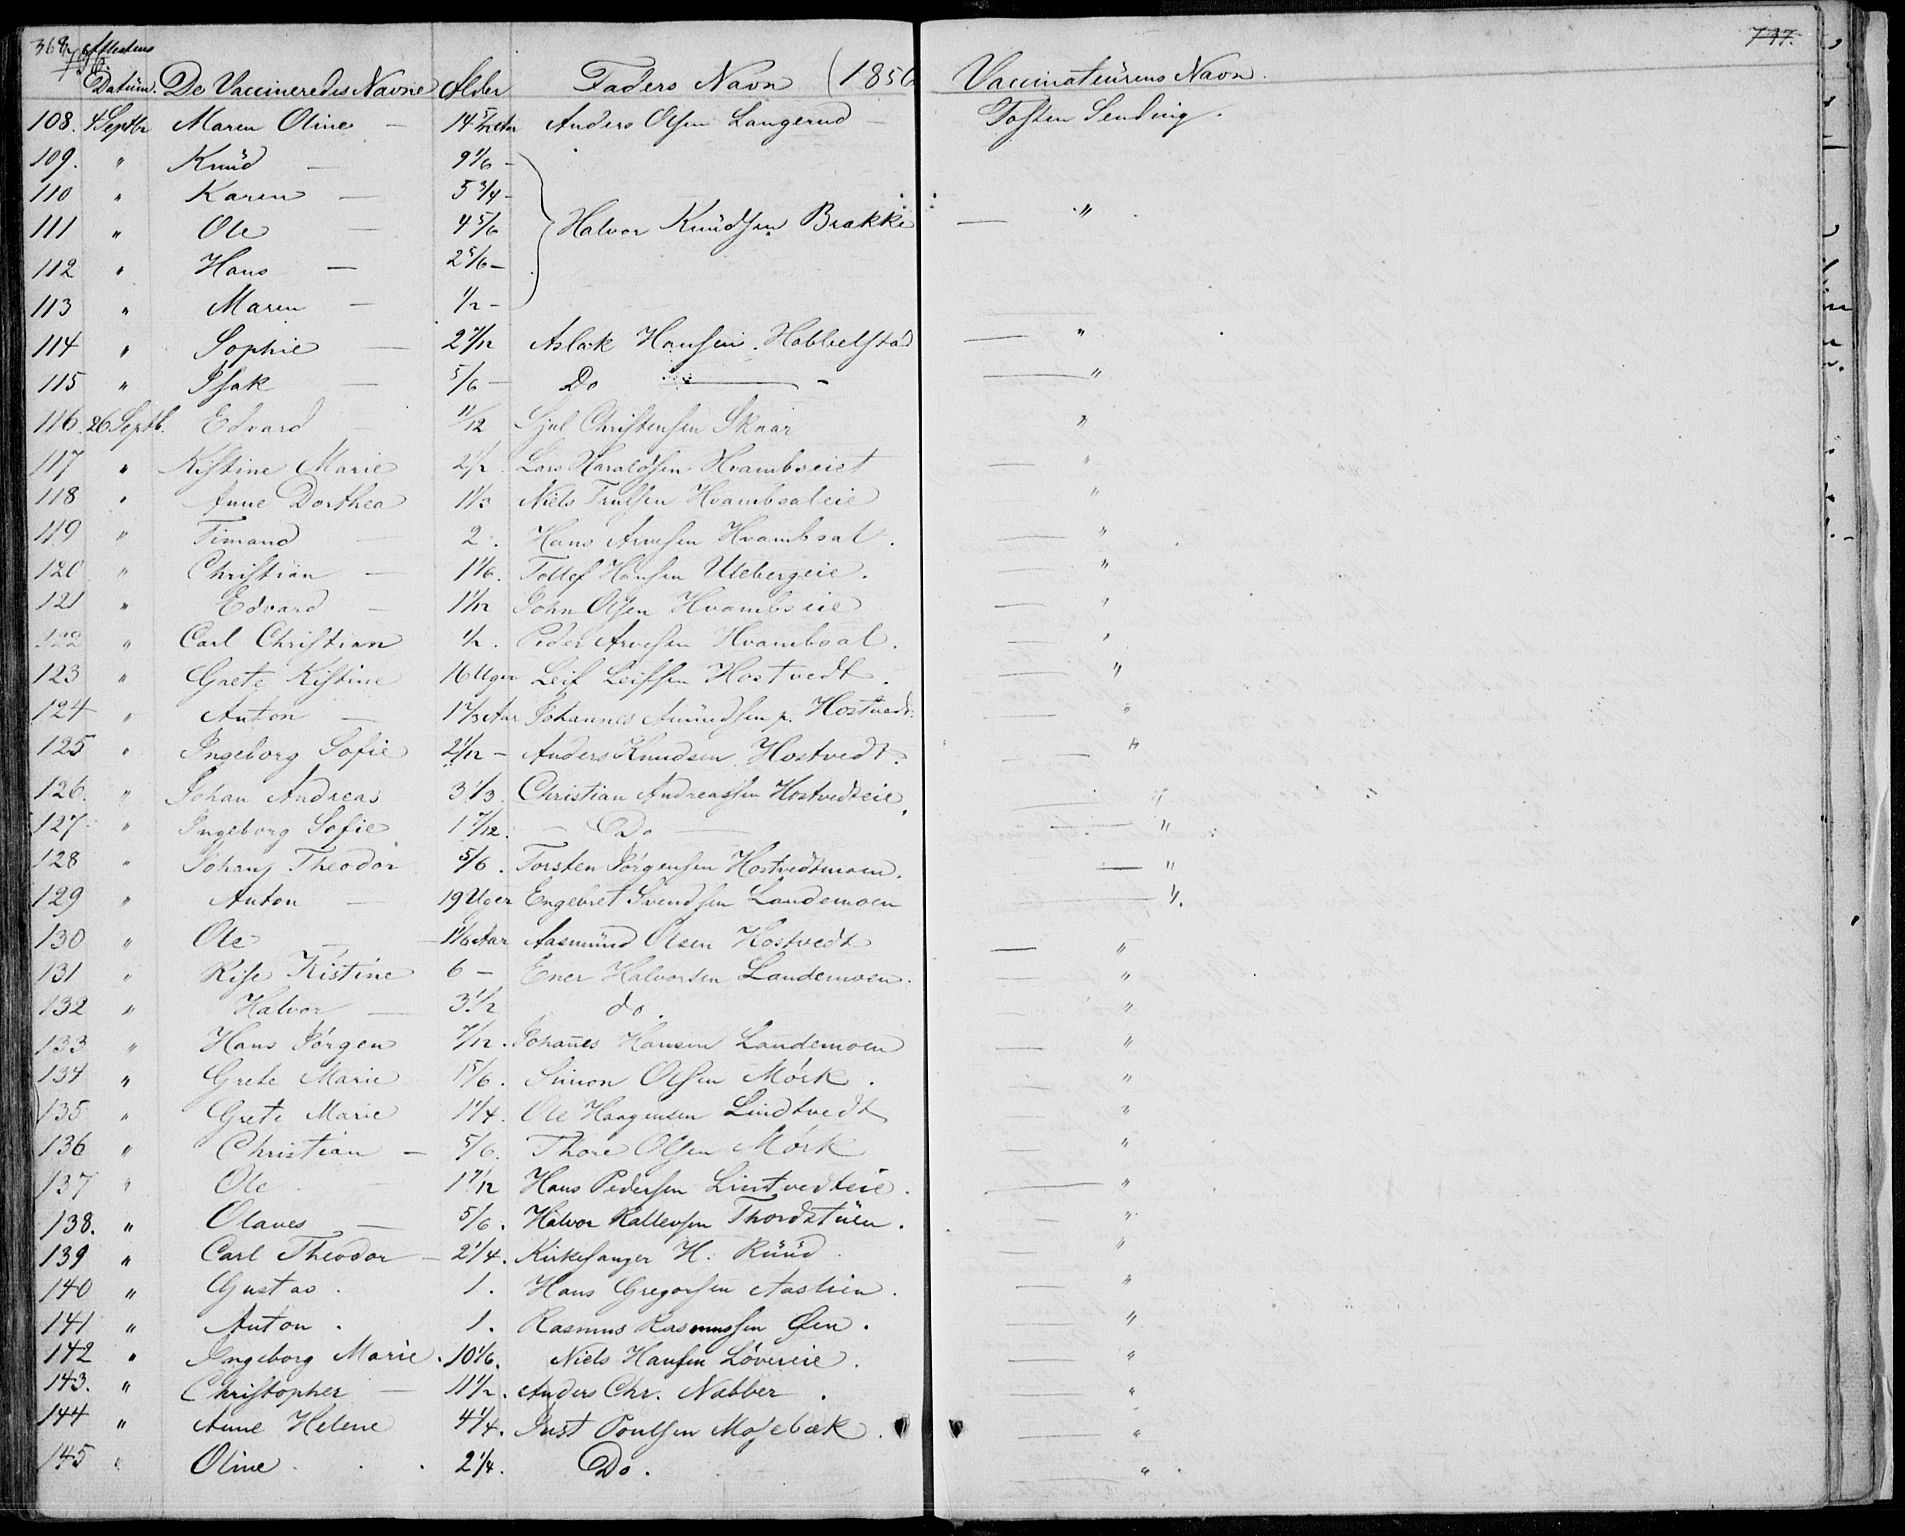 368 Attestens 737.
Datüm. De Vaccineredes Navne Alder Faders Navn (1850 Vaccinateürens Navn.
108. 4 Septbr Maren Oline — 14 5/12 Aar Anders Olsen Langerud — Tosten Sending.
109. " Knüd — 9 1/6 –
110 " Karen — 5 3/4 –
111 " Ole — 4 5/6 Halvor Knüdsen Brække — "
112 " Hans — 2 5/6 –
113 " Maren — 1/2 –
114 " Sophie — 2 7/12 Aslak Hansen Hobbelstad — "
115 " Isak — 5/6 – Do — — "
116. 26 Septb. Edvard — 11/12 Christensen Skaar "
117 " Kistine Marie 2 1/2 Lars Haraldsen Hvambseiet — "
118 " Anne Dorthea 1 1/3 Niels Trulsen Hvambsaleie "
119 " Timand — 2. Hans Arvesen Hvambsal. — "
120 " Christian — 1 1/6. Tollef Hansen Ulebergeie. — "
121 " Edvard — 1 1/12 John Olsen Hvambseie — "
122 " Carl Christian 1/2. Peder Arvesen Hvambsal. — "
123 " Grete Kistine 16 Uger Leif Leifsen Hostvedt. — "
124 " Anton — 1 2/3 Aar Johannes Amündsen p. Hostvedt. — "
125 " Ingeborg Sofie 2 1/12 – Anders Knudsen Hostvedt. — "
126. " Johan Andreas 3 1/3 Christian Andreassen Hostvedteie. — "
127. " Ingeborg Sofie 1 7/12. — Do — — "
128 " Johan Theodor 5/6. Torsten Jörgensen Hostvedtmoen. — "
129 " Anton — 19 Uger Engebret Svendsen Landemoen — ".
130 " Ole — 1 1/6 Aar Aasmünd Olsen Hostvedt — "
131 " Rise Kistine 6 – Ener Halvorsen Landemoen. — "
132 " Halvor — 3 1/2 do. — "
133 " Hans Jörgen 7/12. Johannes Hansen Landemoen — "
134 " Grete Marie 1 5/6. Simon Olsen Mörk. — "
135 " Grete Marie 1 1/4. Ole Haagensen Lindtvedt — "
136 " Christian – 5/6. Thore Olsen Mörk — "
137 " Ole — 1 7/12 Hans Pedersen Lintvedteie. — "
138. " Olaves — 5/6. Halvor Kallevsen Thordstüen. — "
139 " Carl Theodor – 2 1/4. Kirkesanger H. Rüüd. — "
140 " Gustav. 1. Hans Gregorsen Aaslien. — "
141 " Anton. 1. Rasmus Rasmussen Öen. — "
142 " Ingeborg Marie. 10 1/6. Niels Hansen Lövereie. — "
143. " Christopher — 11 1/2. Anders Chr. Nabber. — "
144 " Anne Helene 4 1/4. Just Poulsen Mosebæk. — "
145 " Oline. 2 1/4. Do. — "